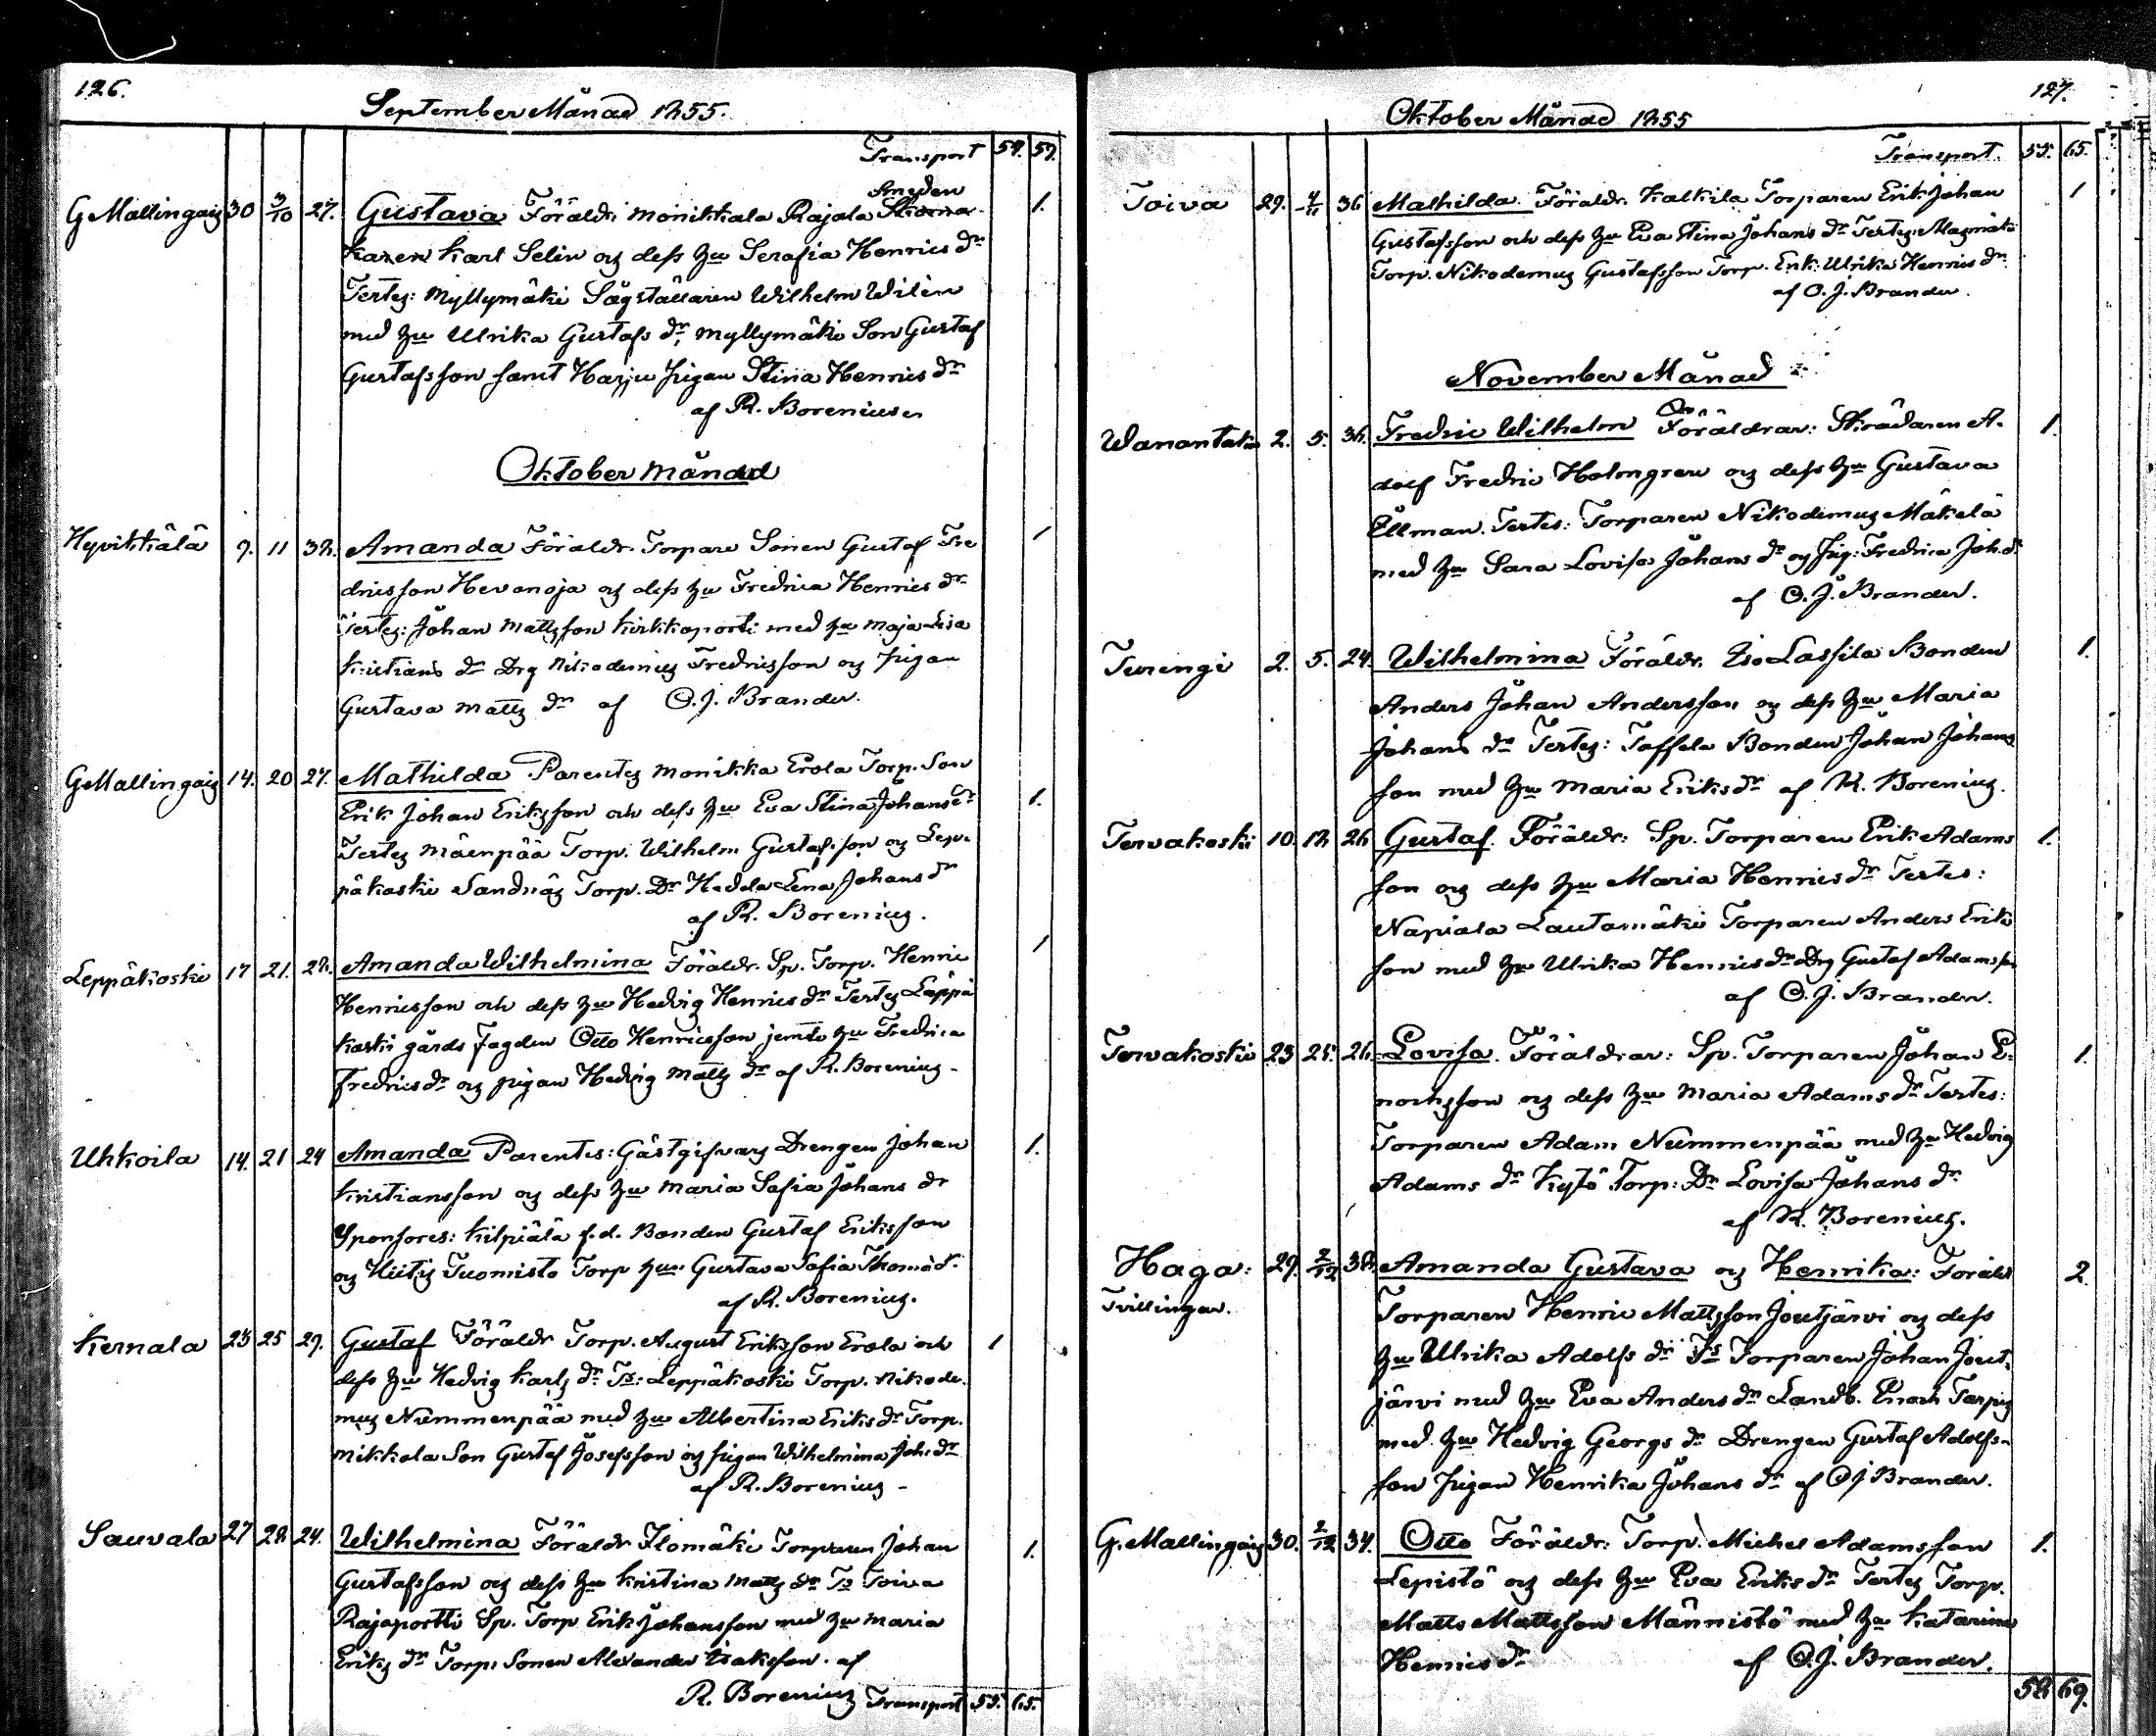 126.
September Månad 1855.
Transport 54. 59.
Smeden
G Mallingais 30 3/10 27. Gustava Föräldr. Monikkala Rajala
karen Karl Selin og dess hu Serafia Henrics dr
Testes: Myllymäki Sågställaren Wilhelm Wilén
med hu Ulrika Gustafs dr, Myllymäki Son Gustaf
Gustafsson samt Harju pigan Stina Henrics dr
af R. Borenius
Oktober Månad
Hyvikkälä 9. 11 38. Amanda Föräldr. Torpare Sonen Gustaf Fre
dricsson Hevonoja og dess hu Fredrica Henrics dr
Testes: Johan Mattsson Kirkkoportti med hu Maja Lisa
Kristians dr Drg Nikodemus Fredricsson og pigan
Gustava Matts dr af O. J. Brander.
G Mallingais 14. 20 27. Mathilda Parentes Monikka Erola Torp. Son
Erik Johan Eriksson och dess hu Eva Stina Johans dr
Testes Mäenpää Torp. Wilhelm Gustafsson og Lep-
päkoski Sandnäs Torp. Dr Hedda Lena Johans dr
af R. Borenius.
Leppäkoski 17 21. 28. Amanda Wilhelmina Föräldr. Sp. Torp. Henric
Henricsson och dess hu Hedvig Henrics dr Testes Leppä
koski gårds Fogden Otto Henricsson jemte hu Fredrica
Fredrics dr og pigan Hedvig Matts dr af R. Borenius
Uhkoila 14. 21 24 Amanda Parentes: Gästgifvars Drengen Johan
Kristiansson og dess hu Maria Sofia Johans dr
Sponsores: Kilpiälä f.d. Bonden Gustaf Eriksson
og Tuomisto Torp hu Gustava Sofia Thomæ dr.
af R. Borenius.
Kernala 23 25 29. Gustaf Föräldr Torp. August Eriksson Erola och
dess hu Hedvig Karls dr Ts: Leppäkoski Torp. Nikode-
mus Nummenpää med hu Albertina Eriks dr Torp.
Mikkola Son Gustaf Josefsson og pigan Wilhelmina Joh. dr
af R. Borenius
Sauvala 27 28. 24. Wilhelmina Föräldr Ilomäki Torparen Johan
Gustafsson og dess hu Kristina Matts dr Ts Toiva
Rajaportti Sp. Torp Erik Johansson med hu Maria
Eriks dr Torp. Sonen Alexander Isaksson. af
R. Borenius Transport 55. 65.
127.
Oktober Månad 1855
Transport. 55. 65.
Toiva 29. 4/11 36 Mathilda. Föräldr. Kalkila Torparen Erik Johan
Gustafsson och dess hu Eva Stina Johans dr Testes:
Torp. Nikodemus Gustafsson Torp. Enk. Ulrika Henrics dr
af O. J. Brander.
November Månad
Wanantaka 2. 5. 38. Fredric Wilhelm Föräldrar: Skrädaren A-
dolf Fredric Holmgren og dess hu Gustava
Ellman. Testes: Torparen Nikodemus Mäkelä
med hu Sara Lovisa Johans dr og pig: Fredrica Joh. dr
af O. J. Brander.
Turengi 2. 5. 24. Wilhelmina Föräldr. Iso Lassila Bonden
Anders Johan Andersson og dess hu Maria
Johans dr Testes: Toffela Bonden Johan Johans
son med hu Maria Eriks dr af R. Borenius.
Tervakoski 10. 18 26 Gustaf. Föräldr: Sp. Torparen Erik Adams
son og dess hu Maria Henrics dr Testes:
Napiala Lautamäki Torparen Anders Eriks
son med hu Ulrika Henrics dr Drg Gustaf Adamsson
af O. J. Brander.
Tervakoski 23 25. 26. Lovisa. Föräldrar: Sp. Torparen Johan E-
nochsson og dess hu Maria Adams dr Testes:
Torparen Adam Nummenpää med hu Hedvig
Adams dr Kytö Torp: Dr Lovisa Johans dr
af R. Borenius.
Haga: 29. 2/12 38. Amanda Gustava og Henrika: Föräldr 2.
Tvillingar. Torparen Henric Mattsson Joutjärvi og dess
hu Ulrika Adolfs dr Ts Torparen Johan Jout-
järvi med hu Eva Anders dr Landb. Enoch
med hu Hedvig Georgs dr Drengen Gustaf Adolfs-
son pigan Henrika Johans dr af O J Brander.
G. Mallingais 30. 2/12 34. Otto Föräldr: Torp. Michel Adamsson
Lepistö og dess hu Eva Eriks dr Testes Torp.
Matts Mattsson Männistö med hu Katarina
Henrics dr af O. J. Brander.
58 69.